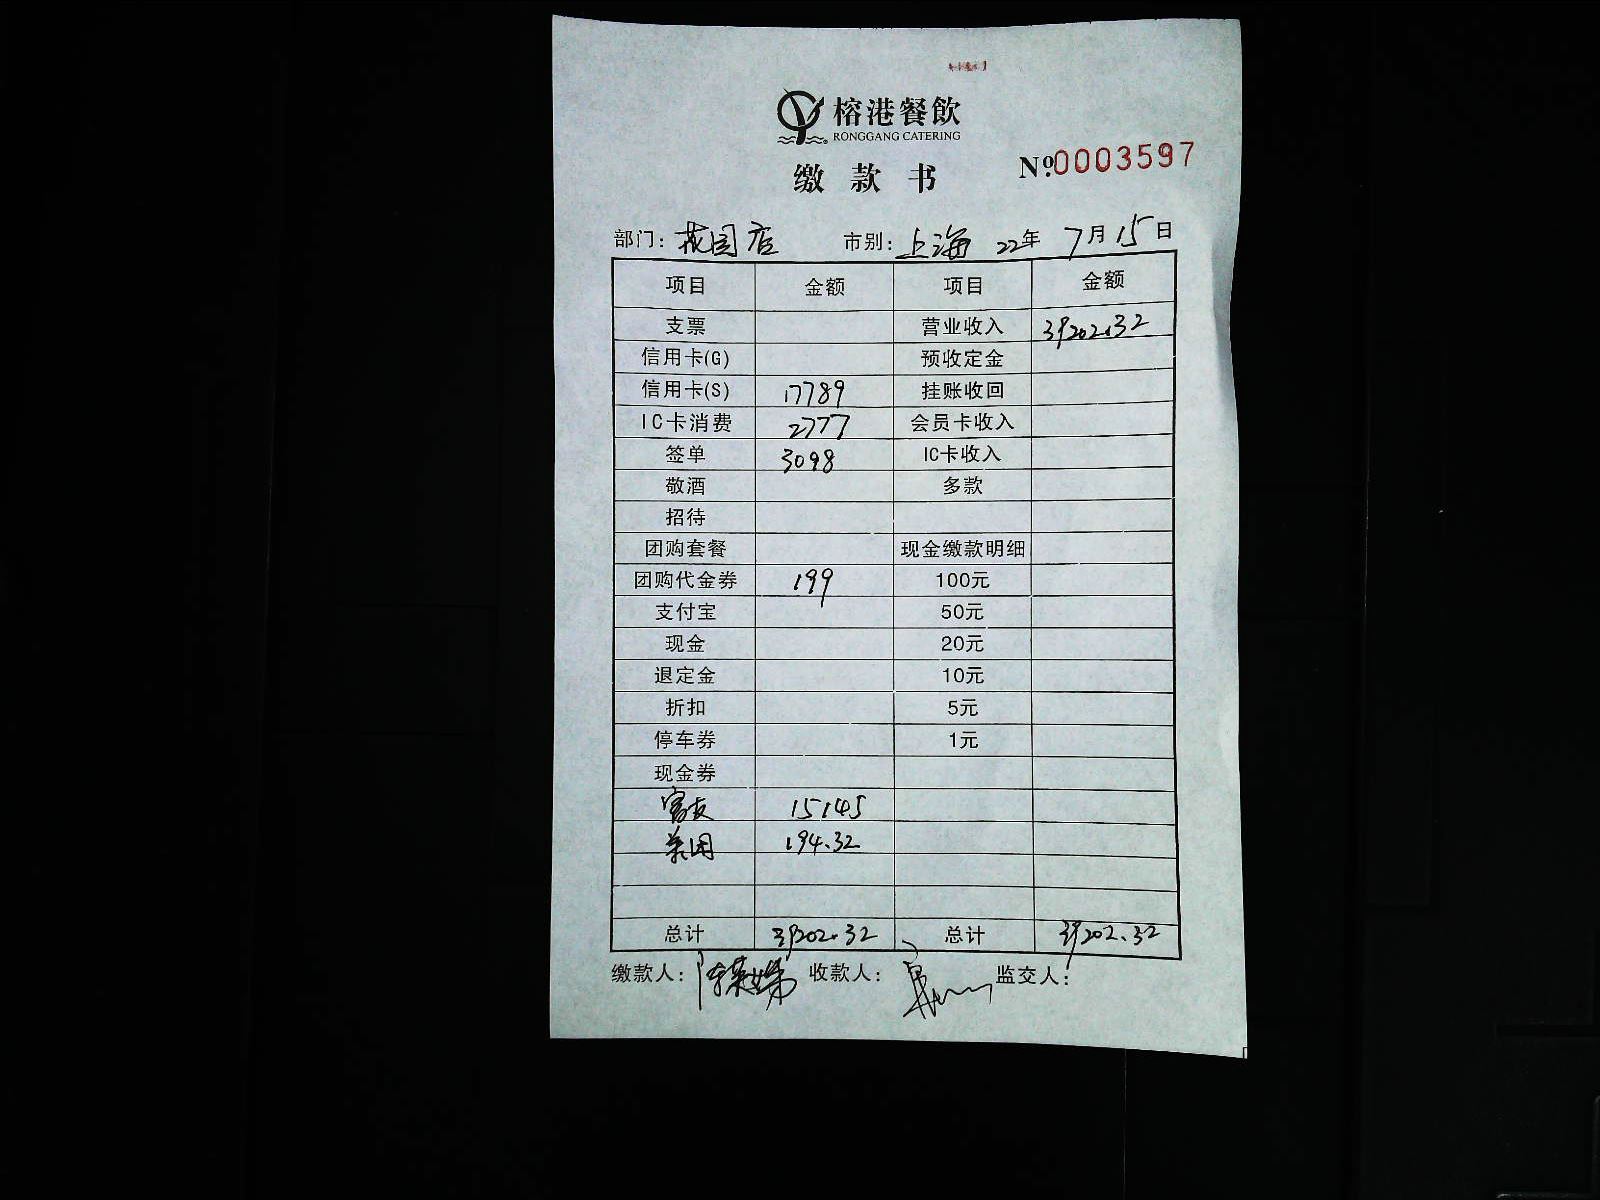 榕港餐飲
RONGGANG CATERING
缴款书
No.0003597
部门: 花园店 市别: 上海 22年 7月15日
项目 金额 项目 金额
支票 营业收入 39202.32
信用卡(G) 预收定金
信用卡(S) 17789 挂账收回
IC卡消费 2777 会员卡收入
签单 3098 IC卡收入
敬酒 多款
招待
团购套餐 现金缴款明细
团购代金券 199 100元
支付宝 50元
现金 20元
退定金 10元
折扣 5元
停车券 1元
现金券
富友 15145
美团 194.32
总计 39202.32 总计 39202.32
缴款人: 收款人: 监交人: